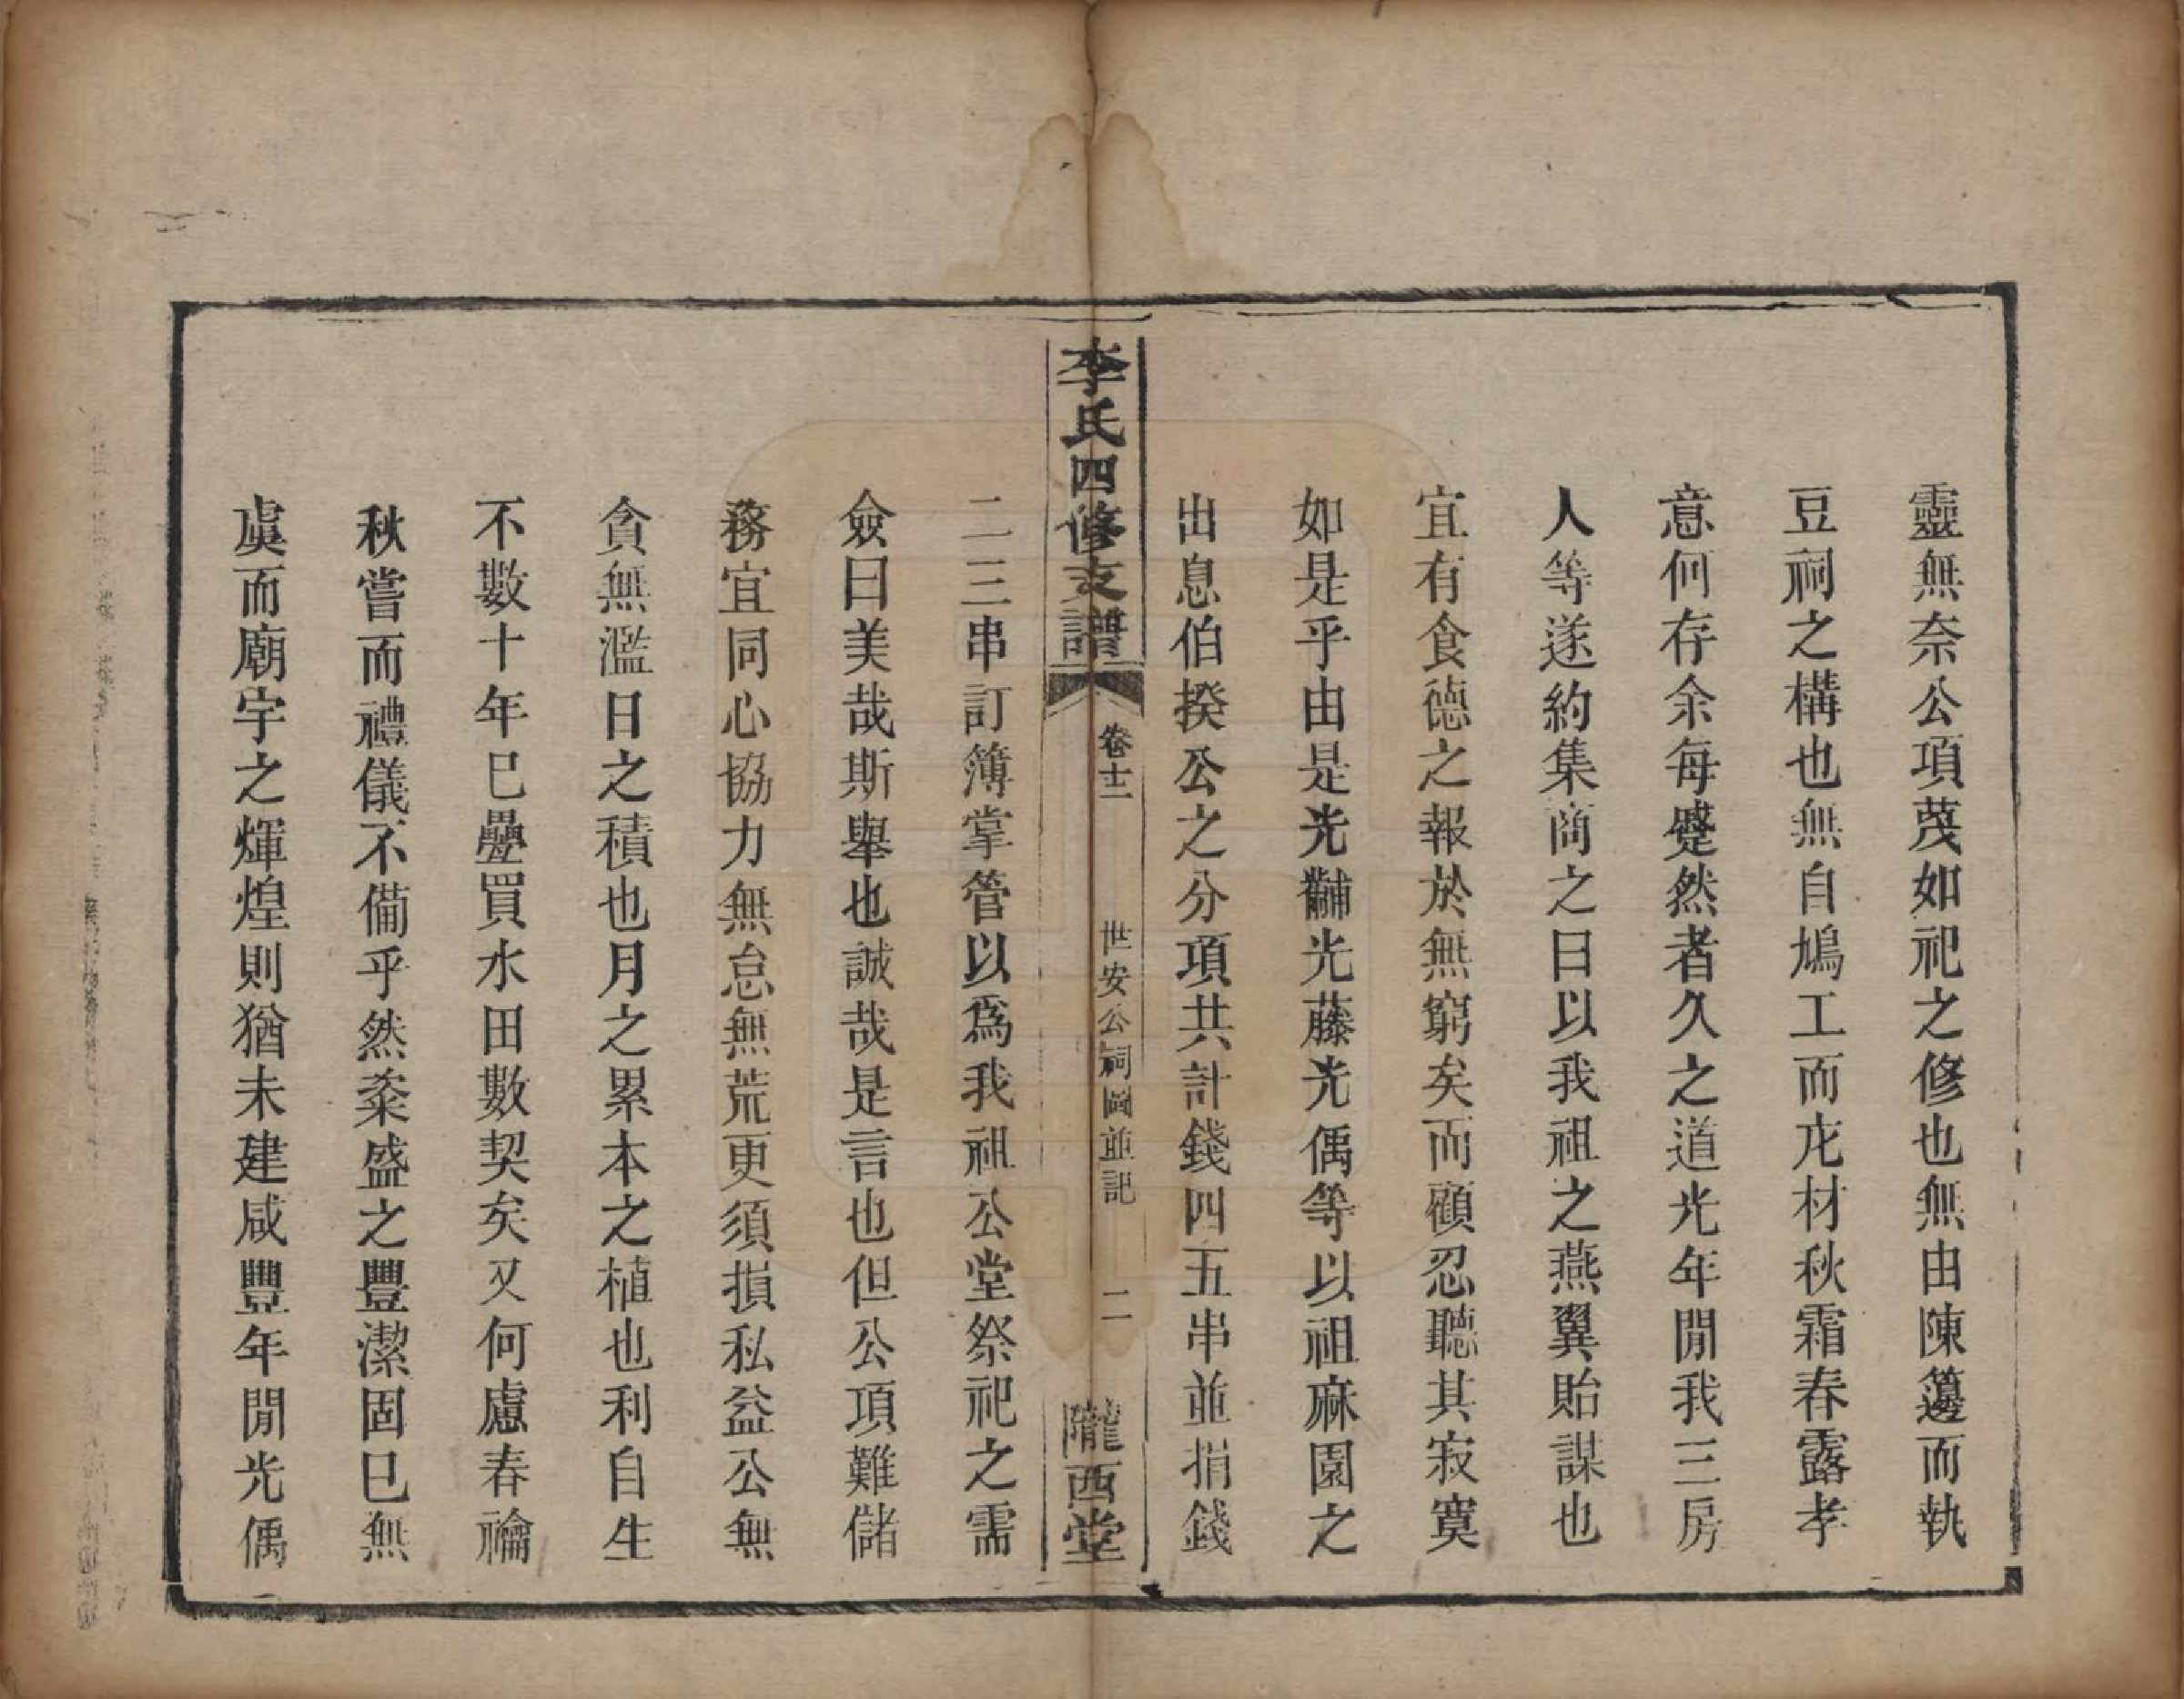 靈無奈公項蔑如祀之修也無由陳籩而執
豆祠之構也無自鳩工而庀材秋霜春露孝
意何存余每蹙然者久之道光年閒我三房
人等遂約集商之曰以我祖之燕翼貽謀也
宜有食德之報於無窮矣而顧忍聽其寂寞
如是乎由是光黼光藤光偶等以祖麻園之
出息伯揆公之分項共計錢四五串並捐錢
李氏四修支譜
卷十二
世安公祠圖並記
二
隴西堂
二三串訂簿掌管以爲我祖公堂祭祀之需
僉曰美哉斯舉也誠哉是言也但公項難儲
務宜同心協力無怠無荒更須損私益公無
貪無濫日之積也月之累本之植也利自生
不數十年巳疊買水田數契矣又何慮春禴
秋嘗而禮儀不備乎然粢盛之豐潔固巳無
虞而廟宇之煇煌則猶未建咸豐年閒光偶